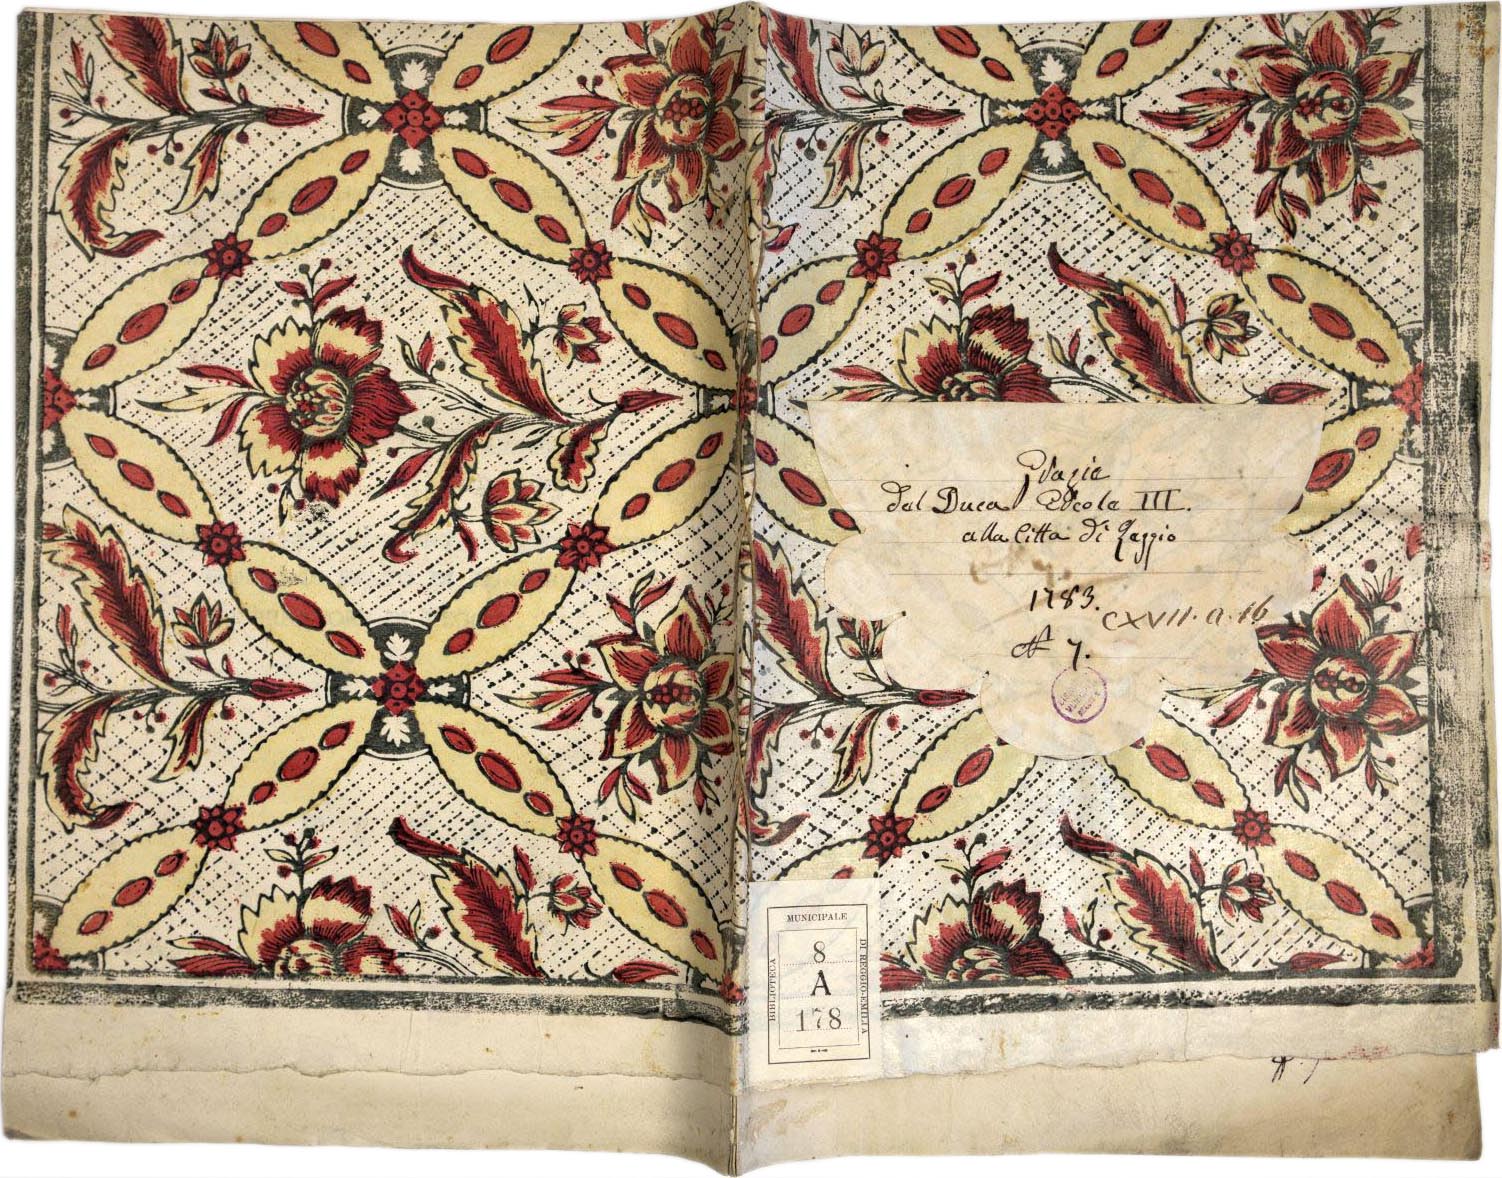 Grazie
del Duca Ercole III.
alla Città di Reggio
1783.
CXVII. a. 16
N 7.
MUNICIPALE
BIBLIOTECA
DI REGGIO-EMILIA
8
A
178